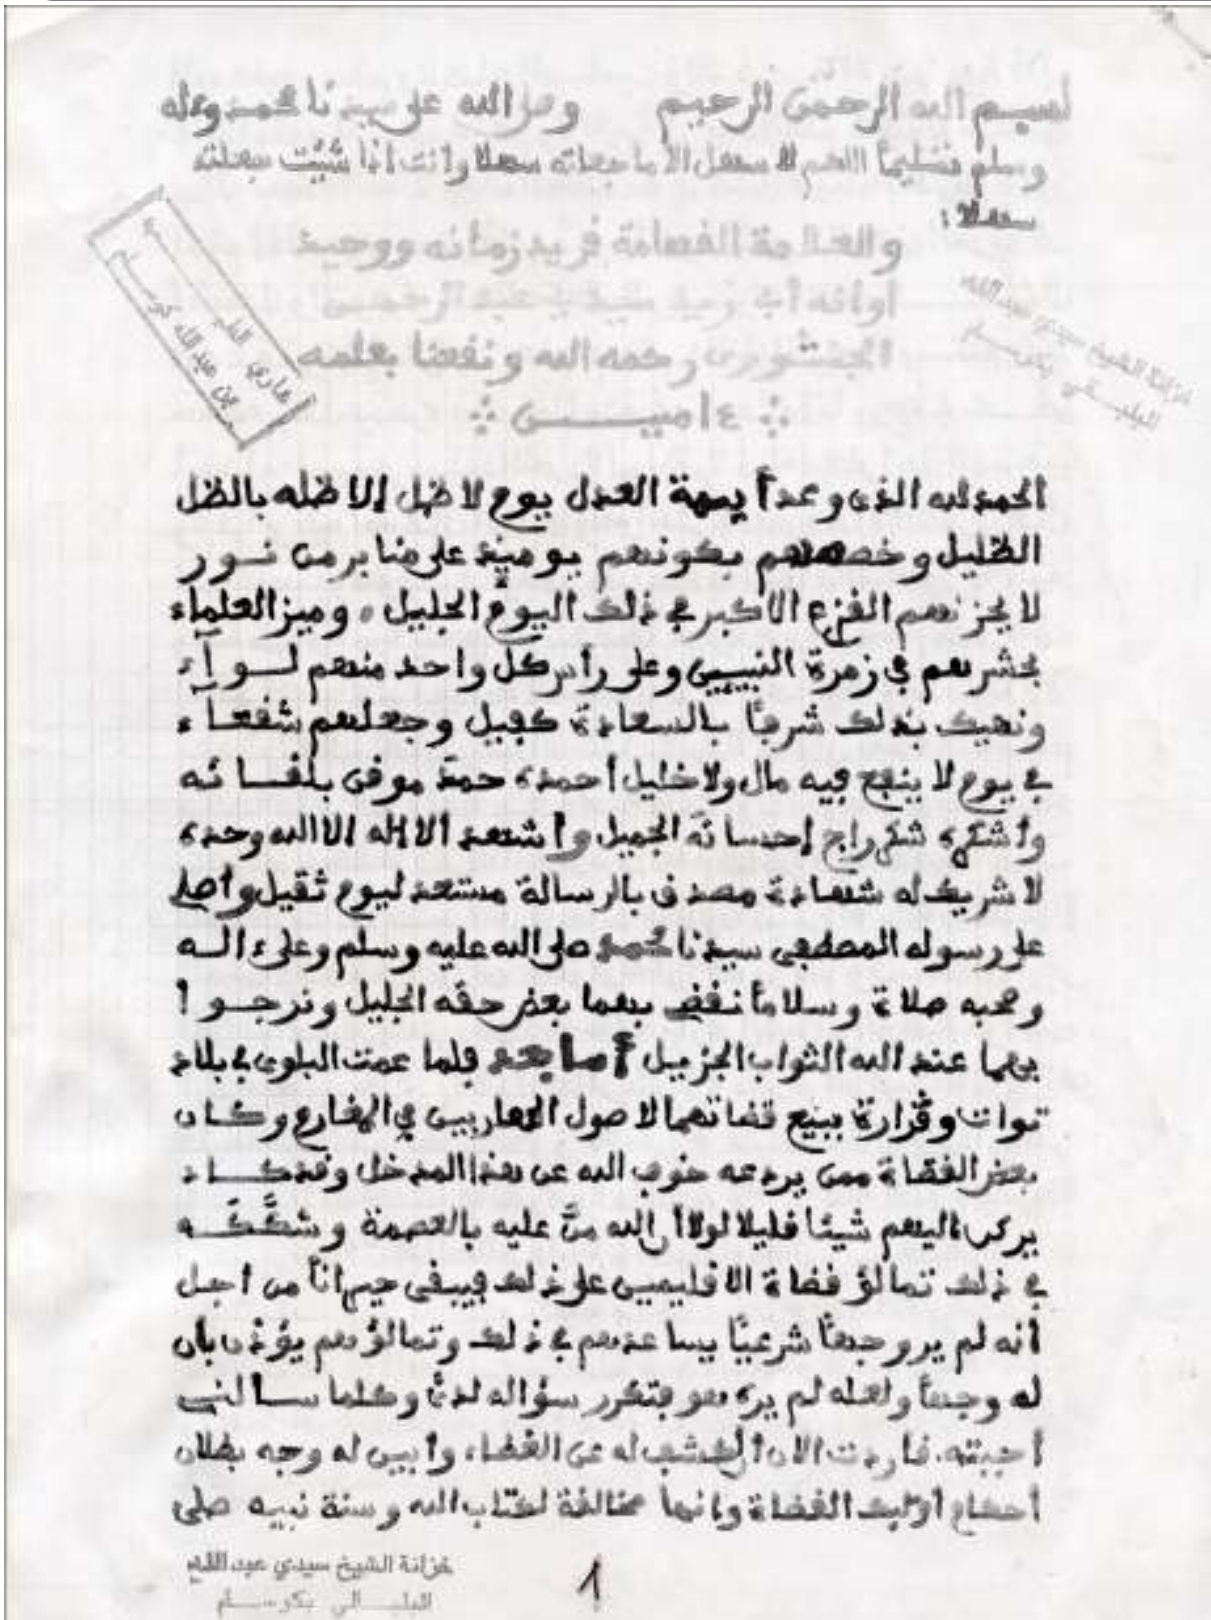 بسم الله الرحمن الرحيم وصلى الله على سيدنا محمد وءاله
وسلم تسليما اللهم لا سهل الا ما جعلته سهلا وانت اذا شئت جعلته
سهلا :
والعلامة الفهامة فريد زمانه ووحيد
أوانه أبى زيد سيدى عبد الرحمن
الجنتورى رحمه الله ونفعنا بعلمه
ءاميـــن
الحمد لله الذى وعد أيمة العدل بيوم لا ظل إلا ظله بالظل
الظليل وخصهم بكونهم يومئذ على منابر من نـــور
لا يحزنهم الفزع الاكبر في ذلك اليوم الجليل ، وميز العلماء
بحشرهم في زمرة النبيين وعلى رأس كل واحد منهم لـــواء
ونهيك بذلك شرفا بالسعادة كفيل وجعلهم شفعاء
في يوم لا ينفع فيه مال ولا خليل أحمده حمد موفى بلقـائه
وأشكره شكر راج إحسانه الجميل وأشهد ألا إله الا الله وحده
لا شريك له شهادة مصدق بالرسالة مستعد ليوم ثقيل وأصلى
على رسوله المصطفى سيدنا محمد صلى الله عليه وسلم وعلى ءالـــه
وصحبه صلاة وسلاما نقضى بهما بعض حقه الجليل ونرجـــوا
بهما عند الله الثواب الجزيل أما بعد فلما عمت البلوى في بلاد
توات وقرارة ببيع قضاتهما لاصول الهاربين في المغارم وكـان
بعض القضاة ممن يردعه خوف الله عن هذا المدخل وقد كـــاد
يركن اليهم شيئا قليلا لولا أن الله منَّ عليه بالعصمة وشكَّكـــه
في ذلك تمالؤ قضاة الاقليمين على ذلك فيبقى حيرانا من أجل
أنه لم ير وجها شرعيا يساعدهم في ذلك وتمالؤهم يؤذن بأن
له وجها ولعله لم يره هو فتكرر سؤاله لدى وكلما ســـألنى
أجبته، فأردت الان أن أكشف له عن الغطاء، وأبين له وجه بطلان
أحكام أولئك القضاة وانها مخالفة لكتاب الله وسنة نبيه صلى
خزانة الشيخ سيدي عبد الله
البلبـــالي بكوســـام
1
خزانة الشيخ سيدي عبد الله
البلبـــالي بكوســـام
بن عبد الله كوســـام